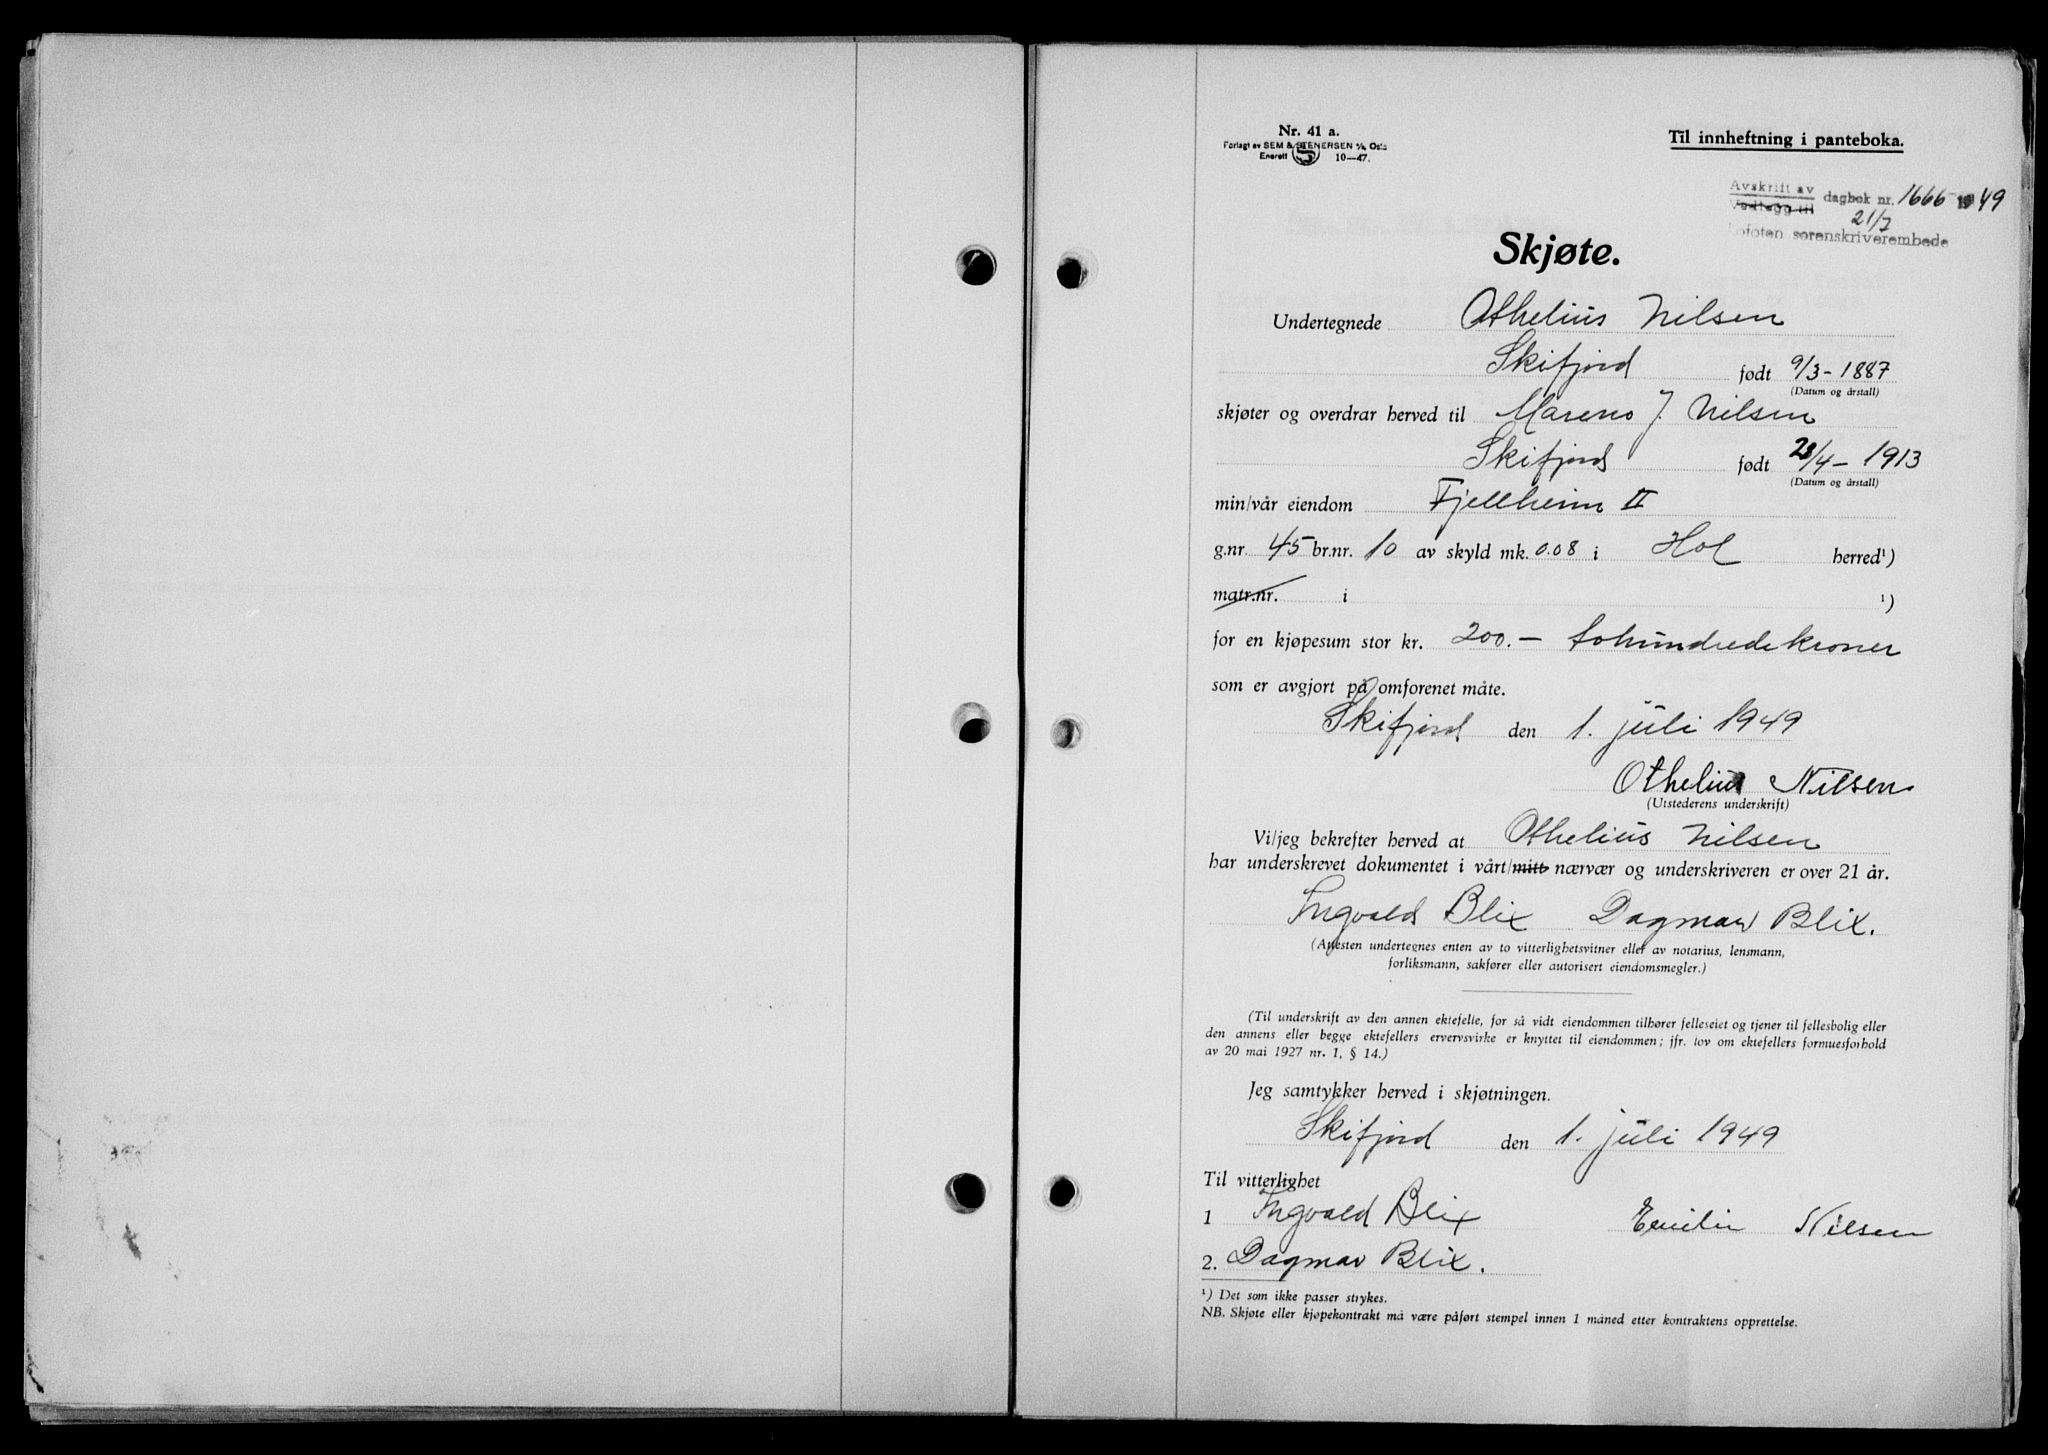 Nr. 41 a.
Forlagt av SEM & STENERSEN A/S, Oslo
Enerett 10—47.
Til innheftning i panteboka.
Avskrift av
Vedlegg til dagbok nr. 1666 - 1949
21/7
Lofoten sorenskriverembede
Skjøte.
Undertegnede Othelius Nilsen
Skifjord født 9/3 - 1887
(Datum og årstall)
skjøter og overdrar herved til Mareno J. Nilsen
Skifjord født 28/4 - 1913
(Datum og årstall)
min/vår eiendom Fjellheim II
g.nr. 45 br.nr. 10 av skyld mk. 0.08 i Hol herred¹)
matr.nr. i ¹)
for en kjøpesum stor kr. 200.— tohundredekroner
som er avgjort på omforenet måte.
Skifjord den 1. juli 1949
Othelius Nilsen
(Utstederens underskrift)
Vi/jeg bekrefter herved at Othelius Nilsen
har underskrevet dokumentet i vårt/mitt nærvær og underskriveren er over 21 år.
Ingvald Blix Dagmar Blix.
(Attesten undertegnes enten av to vitterlighetsvitner eller av notarius, lensmann,
forliksmann, sakfører eller autorisert eiendomsmegler.)
(Til underskrift av den annen ektefelle, for så vidt eiendommen tilhører felleseiet og tjener til fellesbolig eller
den annens eller begge ektefellers ervervsvirke er knyttet til eiendommen; jfr. lov om ektefellers formuesforhold
av 20 mai 1927 nr. 1, § 14.)
Jeg samtykker herved i skjøtningen.
Skifjord den 1. juli 1949
Til vitterlighet
1 Ingvald Blix Emilie Nilsen
2. Dagmar Blix.
¹) Det som ikke passer strykes.
NB. Skjøte eller kjøpekontrakt må være påført stempel innen 1 måned etter kontraktens opprettelse.